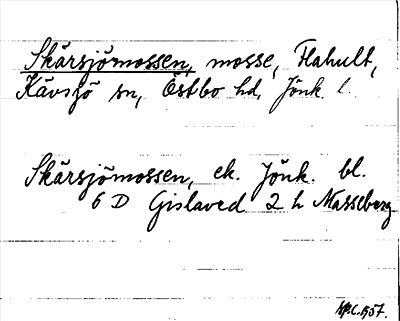 Skärsjömossen, mosse, Flahult,
Kävsjö sn, Östbo hd, Jönk. l.
Skärsjömossen, ek. Jönk. bl.
6 D Gislaved 2 h Masseberg